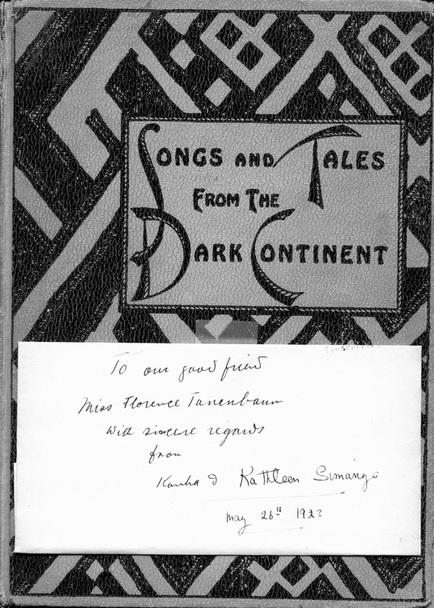 SONGS AND TALES
FROM THE
DARK CONTINENT
To our good friend
Miss Florence Tannenbaum
with sincere regards
from
Kamba & Kathleen Simango
May 26th 1923